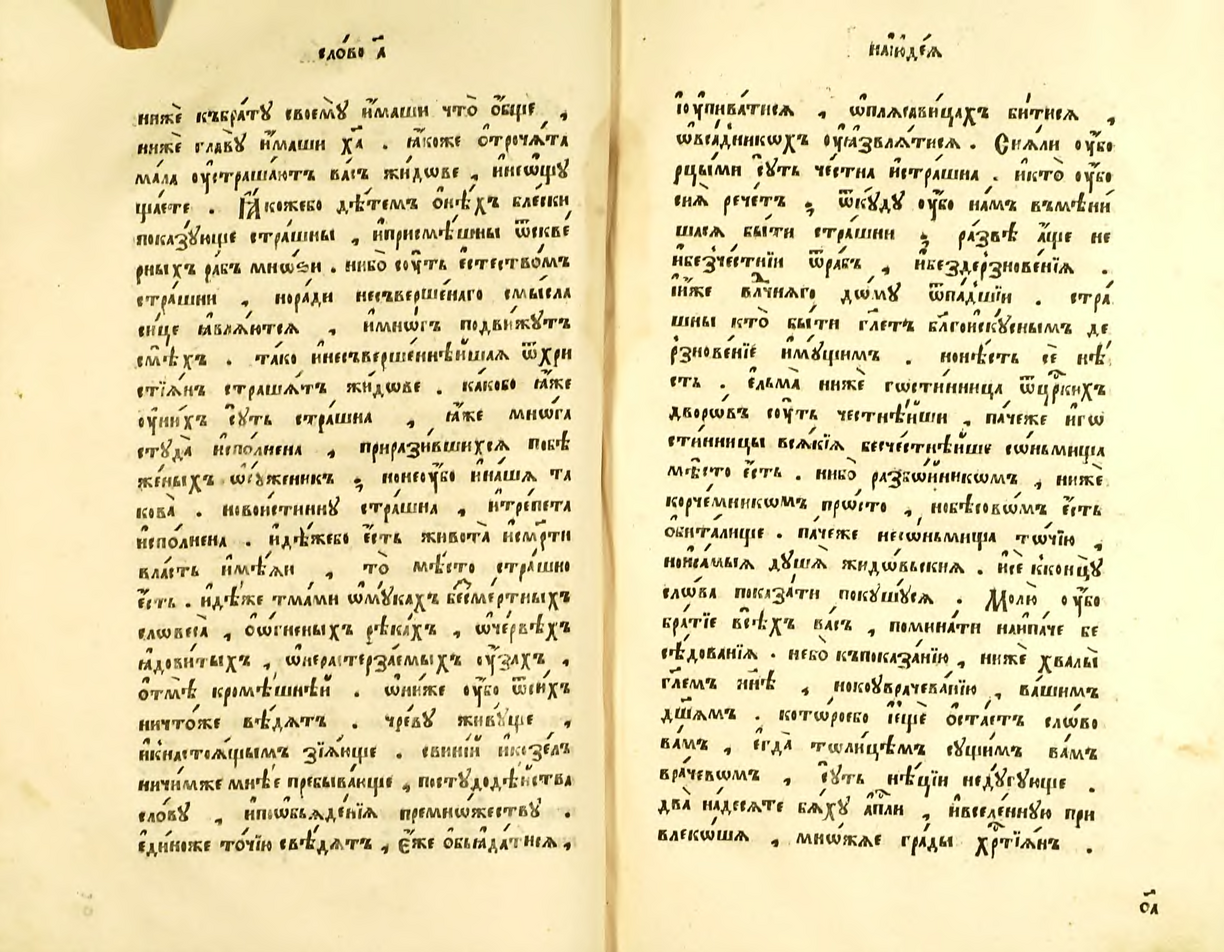 сло́во а҃
нижѐ къбра́тꙋ своемꙋ̀ и҆́маши что̀ о҆́бще ,
ниже главꙋ̀ и҆́маши ха҃ . ꙗ҆́коже ѻ҆троча́та
мала оу҆страша́ютъ ва́съ жи́дове , инеѡ҆щꙋ
ща́ете . Ꙗ҆́кожебо дѣ́темъ ѻ҆нѣ́хъ бле́ски
показꙋ́юще страшны , ипри́смѣшны ѿскве́
рныхъ ра́бъ мнѡ́зи . нибо̀ сꙋ́ть є҆стество́мъ
стра́шни , нора́ди несъверше́наго смы́сла
сице ꙗ҆вла́ются , и҆мнѡ́гъ подви́жꙋтъ
смѣ́хъ . та́ко и҆несъверше́ннѣйшаѧ ѿхри
стїѧ́нъ страша́тъ жи́дове . ка́кобо ꙗ҆́же
оу҆ни́хъ сꙋ́ть стра́шна , ꙗ҆́же мнѡ́га
стꙋда̀ испо́лнена , прирази́вшихсѧ побѣ
жены́хъ ѡ҆сꙋ́женикъ ; нонеоу҆́бо и҆на́ша та
кова̀ . новои́стиннꙋ стра́шна , и҆тре́пета
испо́лнена . идѣ́жебо є҆́сть живота̀ и҆сме́рти
вла́сть и҆мѣ́ѧи , то̀ мѣ́сто стра́шно
є҆́сть . идѣ́же тма́ми ѡ҆мꙋ́кахъ бесме́ртныхъ
словеса̀ , ѻ҆ѻ҆́гненыхъ рѣка́хъ , ѡ҆че́рвѣхъ
ꙗ҆дови́тыхъ , ѡ҆нерасте́рзаемыхъ оу҆́захъ ,
ѻ҆тмѣ̀ кромѣ́шнѣй . ѡ҆ни́же оу҆́бо ѿси́хъ
ничто́же вѣ́дѧтъ . чре́вꙋ живꙋ́ще ,
и҆кнастоѧ́щымъ зїѧ́юще . свині́й и҆козе́лъ
ничи́мже мнѣ́е пребыва́юще , постꙋ́додѣ́йства
сло́вꙋ , и҆пѡѡбъѧде́нїѧ премно́жествꙋ .
єди́ноже то́чїю свѣ́дѧтъ , Е҆́же ѻ҆бъꙗда́тисѧ ,
наїю҆де́ѧ
їоу҆пива́тисѧ , ѡ҆плѧса́вицахъ би́тисѧ ,
ѡ҆вса́дникохъ оу҆ꙗ҆звлѧ́тисѧ . Сиѧ́ли оу҆́бо
рцы́ми сꙋ́ть че́стна и҆стра́шна . икто̀ оу҆́бо
сиѧ̀ рече́тъ ; ѿкꙋ́дꙋ оу҆́бо на́мъ въмѣни́
шасѧ бы́ти стра́шни ; ра́звѣ а҆́ще не
и҆безче́стнїи ѿра́бъ , и҆бездерзнове́нїѧ .
и҆́иже вл҃чнѧго до́мꙋ ѿпа́дшїи . стра́
шны кто̀ бы́ти гл҃етъ бл҃гоискꙋ́снымъ де
рзнове́нїе и҆мꙋ́щимъ . нонѣ́сть сѐ нѣ́
сть . є҆льма̀ нижѐ гѡсти́нница ѿцр҃кихъ
дворѡ́въ сꙋ́ть честнѣ́йши , па́чеже и҆гѡ
сти́нницы всѧ́кїѧ бесче́стнѣйше со́ньмища
мѣ́сто є҆́сть . нибо̀ разбо́йникѡмъ , нижѐ
корче́мникѡмъ про́сто , нобѣ́совѡмъ є҆́сть
ѻ҆бита́лище . па́чеже несо́ньмища то́чїю ,
ноиса́мыѧ дꙋ́шѧ жидо́вьскиѧ . и҆сѐ кконцꙋ̀
сло́ва показа́ти покꙋшꙋ́сѧ . Молю̀ оу҆́бо
бра́тїе всѣ́хъ ва́съ , помина́ти наипа́че бе
сѣ́дованїѧ . небо̀ къпоказа́нїю , нижѐ хвалы̀
гл҃емъ нн҃ѣ , нокоуврачева́нїю , ва́шимъ
дш҃ѧмъ . кото́роебо їещѐ ѻ҆ста́етъ сло́во
ва́мъ , є҆гда̀ толи́цѣмъ сꙋ́щимъ ва́мъ
враче́вѡмъ , сꙋ́ть нѣ́цїи недꙋ́гꙋюще .
два̀ на́десѧте бѧ́хꙋ а҆пл҃и , и҆вселе́ннꙋю при
влеко́шѧ , мно́жѧе гра́ды хрⷭ҇тїѧ́нъ .
ѻ҃а